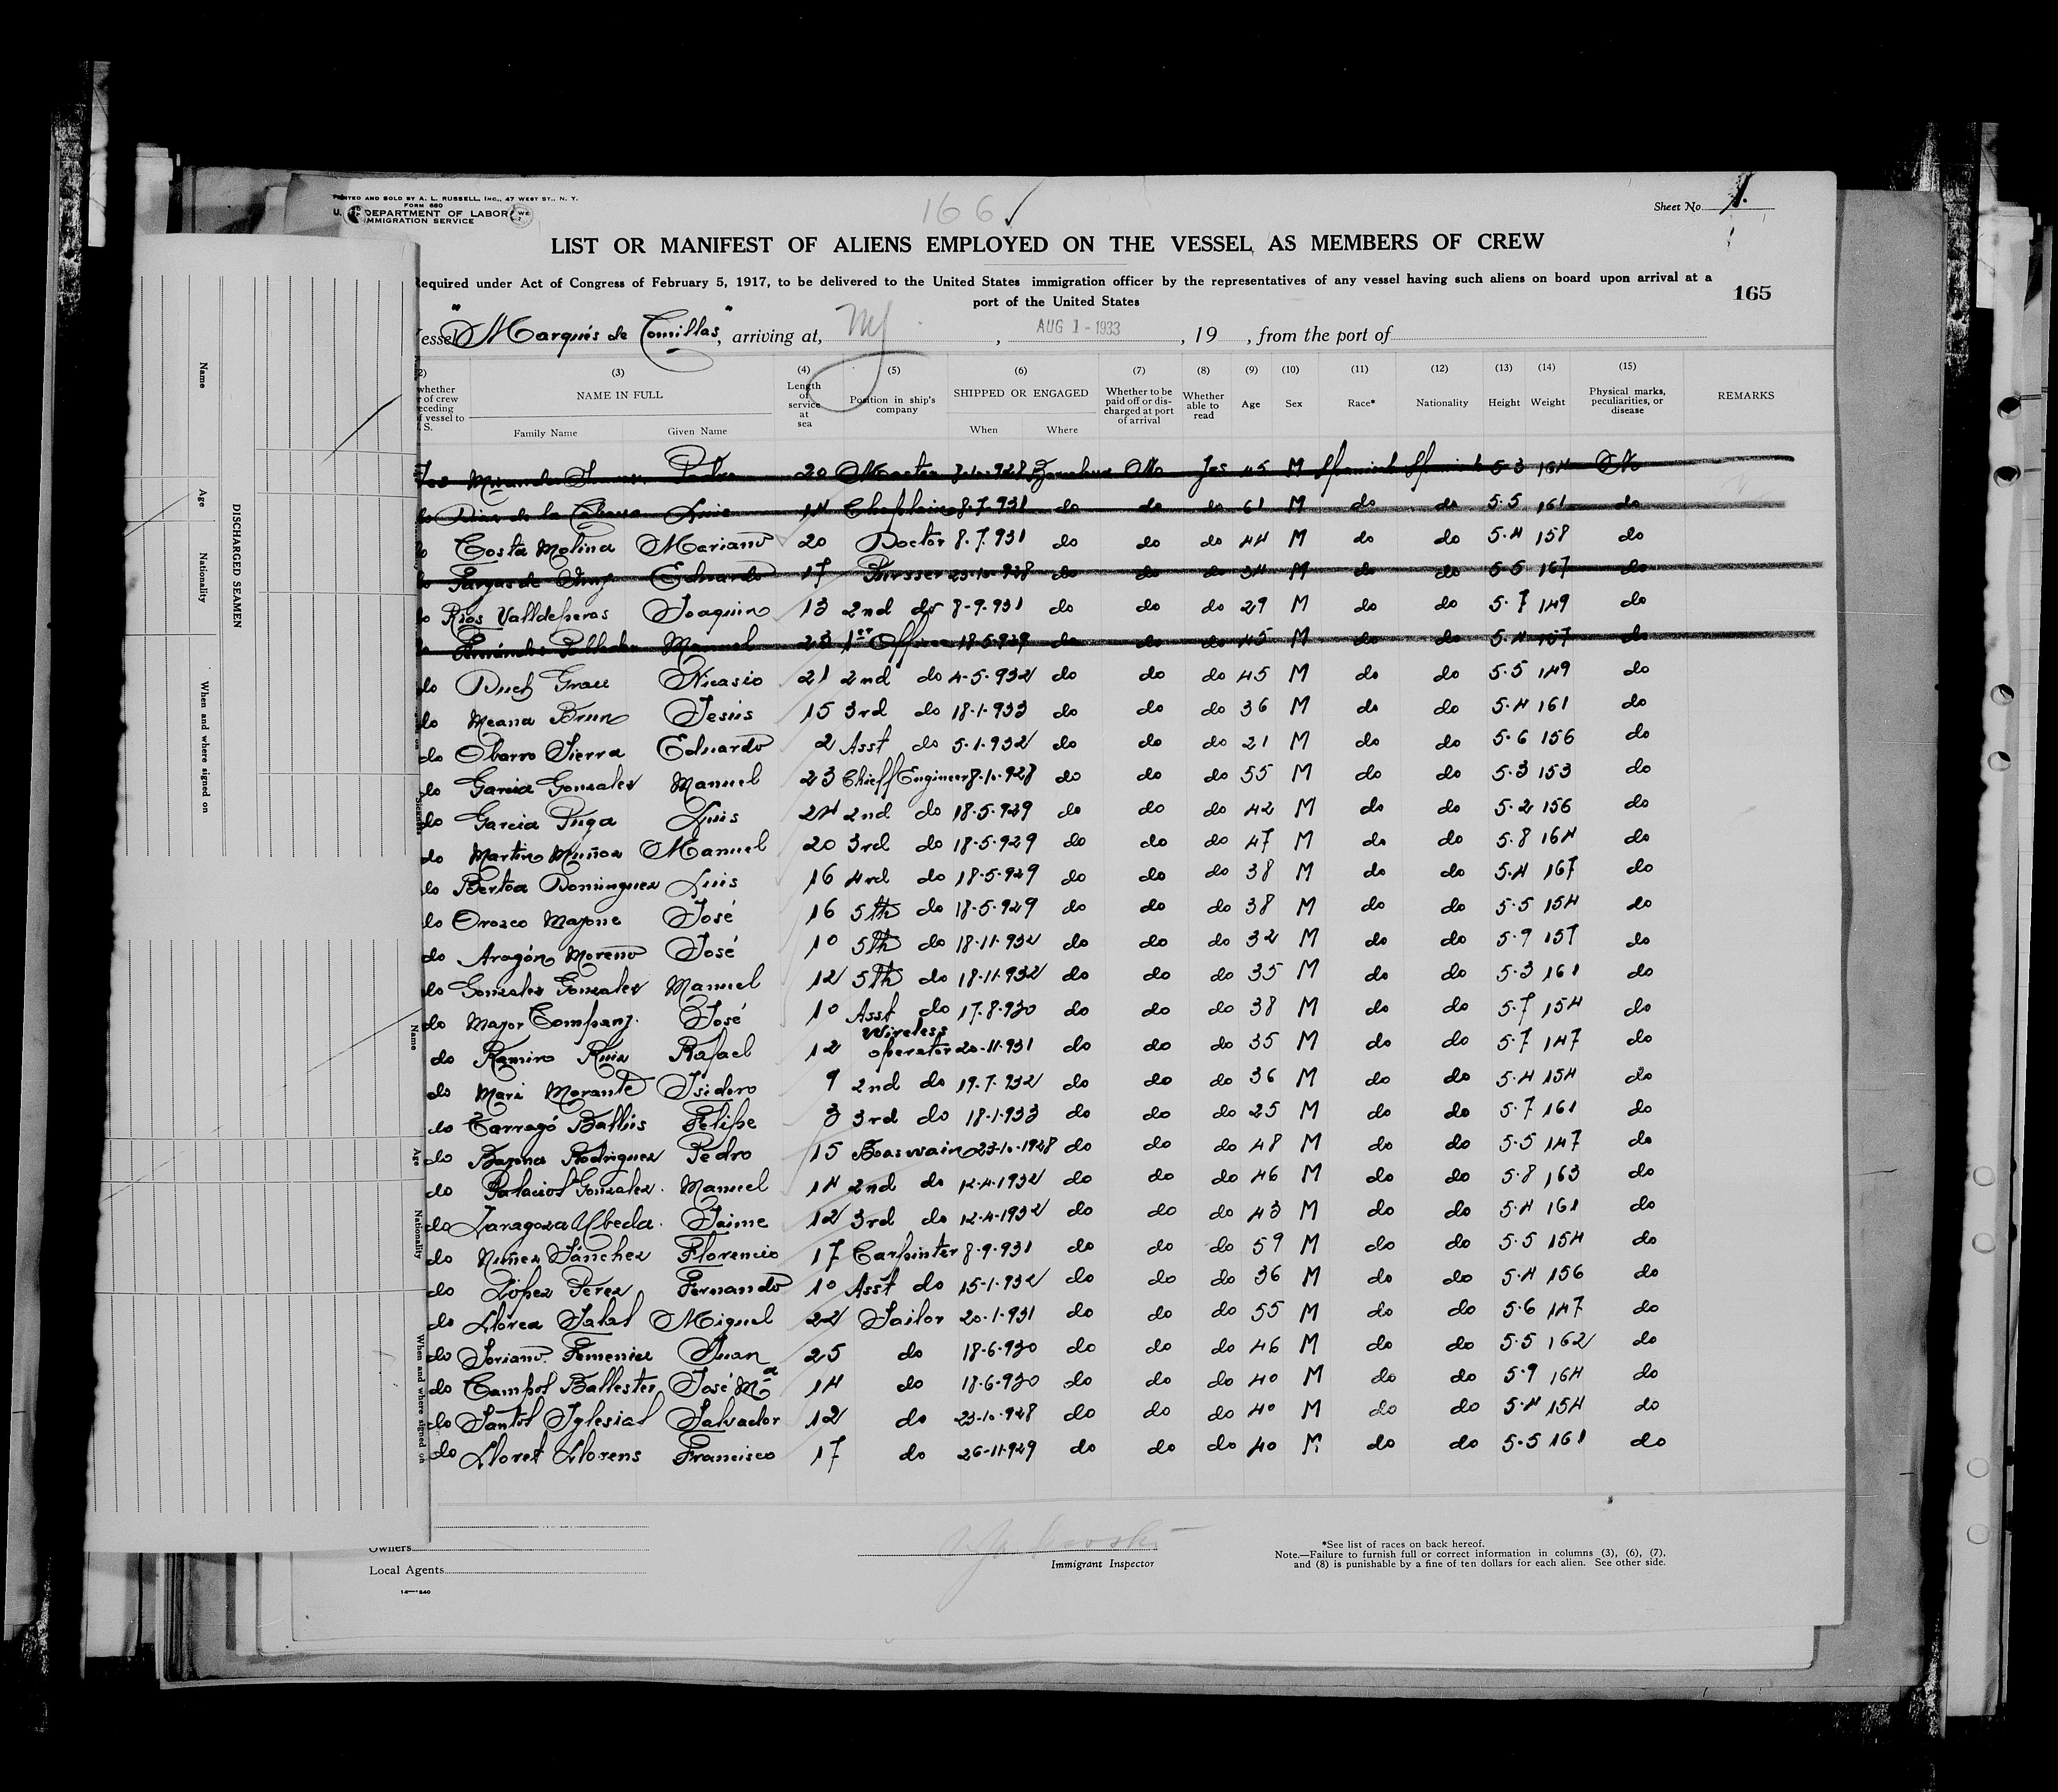 PRINTED AND SOLD BY A. L. RUSSELL, INC., 47 WEST ST., N. Y.
FORM 680
U. DEPARTMENT OF LABOR
IMMIGRATION SERVICE
166 ✓
Sheet No. 1.
LIST OR MANIFEST OF ALIENS EMPLOYED ON THE VESSEL AS MEMBERS OF CREW
Required under Act of Congress of February 5, 1917, to be delivered to the United States immigration officer by the representatives of any vessel having such aliens on board upon arrival at a
port of the United States
165
essel "Marqués de Comillas", arriving at, NY, AUG 1 - 1933, 19 , from the port of
(2) (3) (4) (5) (6) (7) (8) (9) (10) (11) (12) (13) (14) (15)
whether of crew eceding vessel to S. NAME IN FULL Family Name Given Name Length of service at sea Position in ship's company SHIPPED OR ENGAGED When Where Whether to be paid off or discharged at port of arrival Whether able to read Age Sex Race* Nationality Height Weight Physical marks, peculiarities, or disease REMARKS
Pedro 20 Master No Yes 45 M Spanish Spanish 5-3 164 No
do Dias de la Luis 14 Chaplain 8.7.931 do do do 61 M do do 5.5 161 do
do Costa Molina Mariano 20 Doctor 8.7.931 do do do 44 M do do 5.4 158 do
do Eduardo 17 Pursser 23-10-928 do do do 34 M do do 5.5 167 do
do Rios Valldeperas Joaquin 13 2nd do 8-9-931 do do do 29 M do do 5.7 149 do
do Fernández Manuel 23 1er Officer 18.5.929 do do do 45 M do do 5.4 do
do Duch Grau Nicasio 21 2nd do 4-5-932 do do do 45 M do do 5.5 149 do
do Meana Brun Jesús 15 3rd do 18-1-933 do do do 36 M do do 5.4 161 do
do Obarro Sierra Eduardo 2 Asst do 5-1-932 do do do 21 M do do 5.6 156 do
do Garcia Gonzalez Manuel 23 Chieff Engineer 8-10-928 do do do 55 M do do 5.3 153 do
do Garcia Puga Luis 24 2nd do 18-5-929 do do do 42 M do do 5.2 156 do
do Martin Muñoz Manuel 20 3rd do 18-5-929 do do do 47 M do do 5.8 164 do
do Bertoa Dominguez Luis 16 4rd do 18-5-929 do do do 38 M do do 5.4 167 do
do Orozco Mayone José 16 5th do 18-5-929 do do do 38 M do do 5.5 154 do
do Aragón Moreno José 10 5th do 18-11-932 do do do 32 M do do 5.9 157 do
do Gonzalez Gonzalez Manuel 12 5th do 18-11-932 do do do 35 M do do 5.3 161 do
do Mayor Company. José 10 Asst do 17-8-930 do do do 38 M do do 5.7 154 do
do Ramiro Ruiz Rafael 12 Wireless operator 20-11-931 do do do 35 M do do 5.7 147 do
do Mari Morante Isidoro 9 2nd do 19-7-932 do do do 36 M do do 5.4 154 do
do Tarragó Ballús Felipe 3 3rd do 18-1-933 do do do 25 M do do 5.7 161 do
do Bayona Rodriguez Pedro 15 Boaswain 23-10-1928 do do do 48 M do do 5.5 147 do
do Palaciol Gonzalez. Manuel 14 2nd do 12-4-1932 do do do 46 M do do 5.8 163 do
do Zaragoza Ubeda. Jaime 12 3rd do 12-4-1932 do do do 43 M do do 5.4 161 do
do Nuñez Sánchez Florencio 17 Carpinter 8-9-931 do do do 59 M do do 5.5 154 do
do López Perez Fernando 10 Asst do 15-1-932 do do do 36 M do do 5.4 156 do
do Llorca Salal Miguel 22 Sailor 20-1-931 do do do 55 M do do 5.6 147 do
do Soriano Femenia Juan 25 do 18-6-930 do do do 46 M do do 5.5 162 do
do Campol Ballester José Mª 14 do 18-6-930 do do do 40 M do do 5.9 164 do
do Santol Iglesial Salvador 12 do 23-10-928 do do do 40 M do do 5.4 154 do
do Lloret Llorens Francisco 17 do 26-11-929 do do do 40 M do do 5.5 161 do
Owners
Local Agents
Immigrant Inspector
*See list of races on back hereof.
Note.—Failure to furnish full or correct information in columns (3), (6), (7),
and (8) is punishable by a fine of ten dollars for each alien. See other side.
DISCHARGED SEAMEN
Name Age Nationality When and where signed on
Name Age Nationality When and where signed on